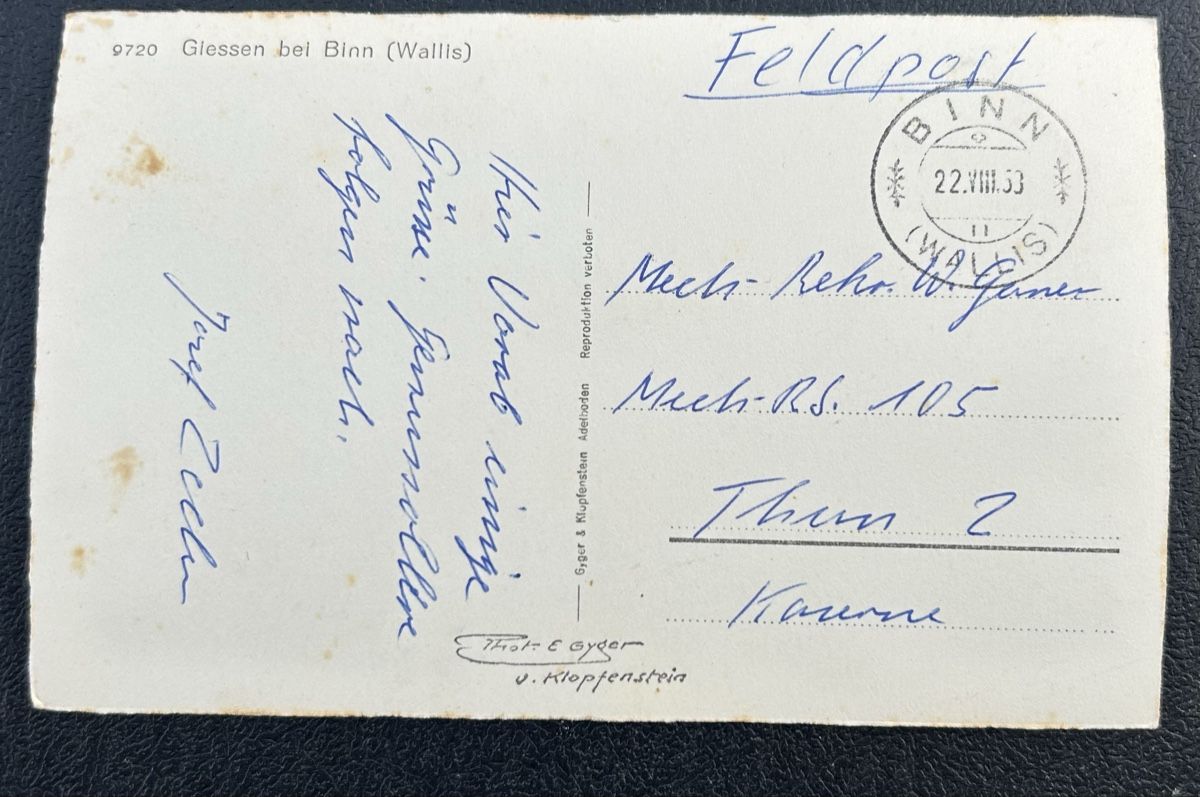 9720 Giessen bei Binn (Wallis)
Feldpost
BINN
22.VIII.53
(WALLIS)
Hier Vorab einige
Grüsse. Genussvollere
folgen nach.
Josef
Mech-Rekr. W. Gerner
Mech-RS. 105
Thun 2
Kaserne
Gyger & Klopfenstein Adelboden Reproduktion verboten
Phot. E Gyger
u. Klopfenstein